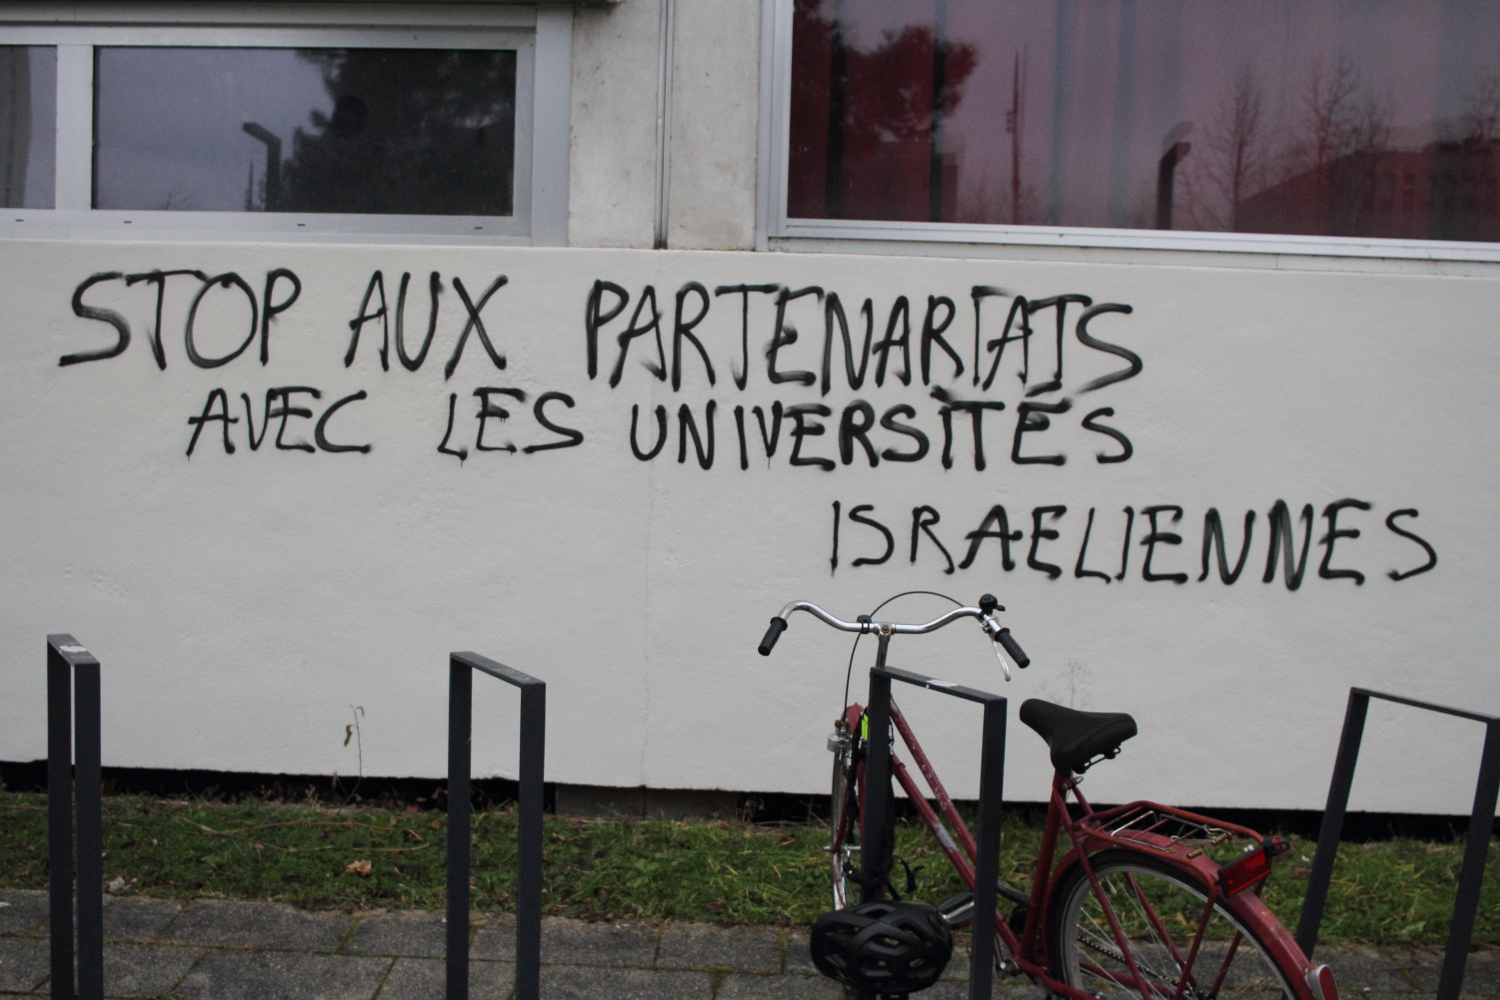 STOP AUX PARTENARIATS
AVEC LES UNIVERSITÉS
ISRAELIENNES